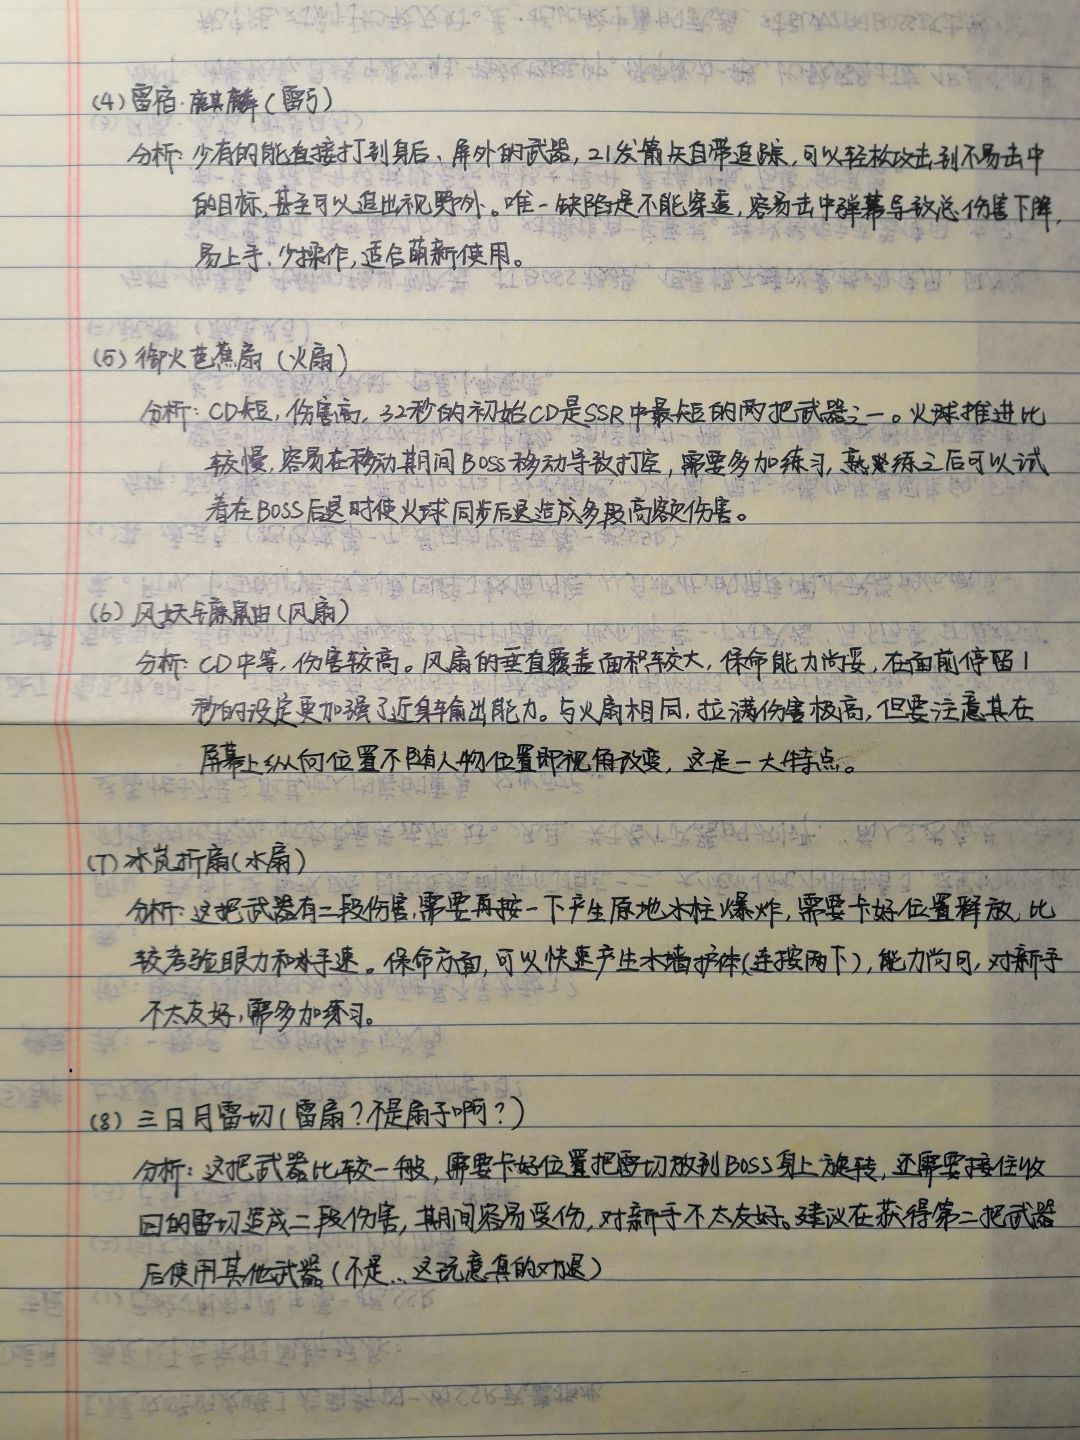 (4) 雷宿·麒麟(雷弓)
分析:少有的能直接打到身后、屏外的武器,21发箭矢自带追踪,可以轻松攻击到不易击中
的目标,甚至可以追出视野外。唯一缺陷是不能穿透,容易击中弹幕导致总伤害下降,
易上手、少操作,适合萌新使用。
(5) 御火芭蕉扇(火扇)
分析:CD短,伤害高,32秒的初始CD是SSR中最短的两把武器之一。火球推进比
较慢,容易在移动期间BOSS移动导致打空,需要多加练习,熟练之后可以试
着在BOSS后退时使火球同步后退造成多段高额伤害。
(6) 风妖(风扇)
分析:CD中等,伤害较高。风扇的垂直覆盖面积较大,保命能力尚妥,在面前停留1
秒的设定更加强了近身输出能力。与火扇相同,拉满伤害极高,但要注意其在
屏幕上纵向位置不随人物位置即视角改变,这是一大特点。
(7) 冰岚折扇(水扇)
分析:这把武器有二段伤害,需要再按一下产生原地水柱爆炸,需要卡好位置释放,比
较考验眼力和手速。保命方面,可以快速产生水墙护体(连按两下),能力尚可,对新手
不太友好,需多加练习。
(8) 三日月雷切(雷扇?不是扇子啊?)
分析:这把武器比较一般,需要卡好位置把雷切放到BOSS身上旋转,还需要接住收
回的雷切造成二段伤害,期间容易受伤,对新手不太友好。建议在获得第二把武器
后使用其他武器(不是...这玩意真的劝退)